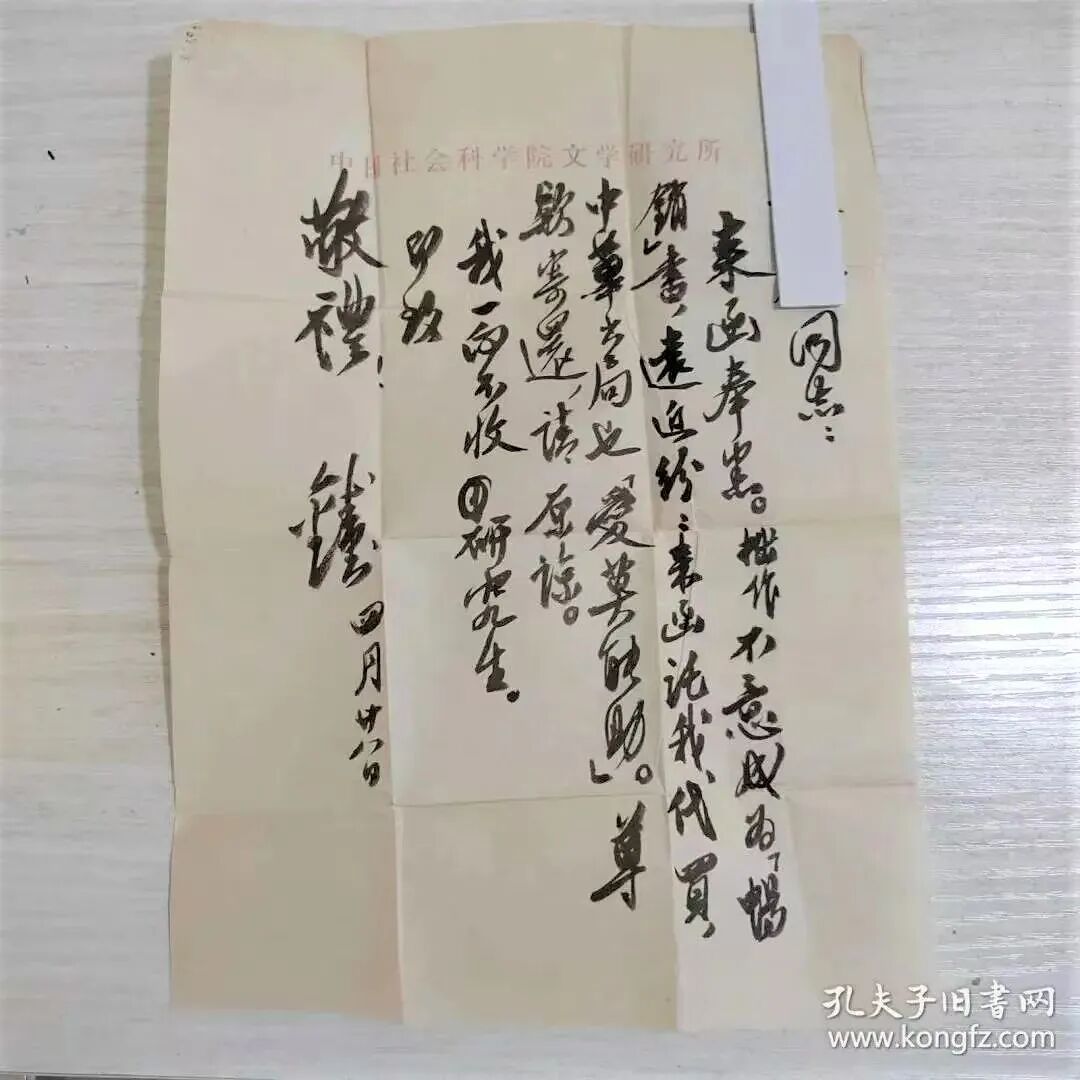 中国社会科学院文学研究所
同志：
来函奉悉。拙作不意成为「暢
銷」書，遠近紛：来函託我代買，
中華書局也「愛莫能助」。尊
款寄還，請原諒。
我一向不收研究生。
即致
敬禮！
錢
四月廿八日
孔夫子旧书网
www.kongfz.com